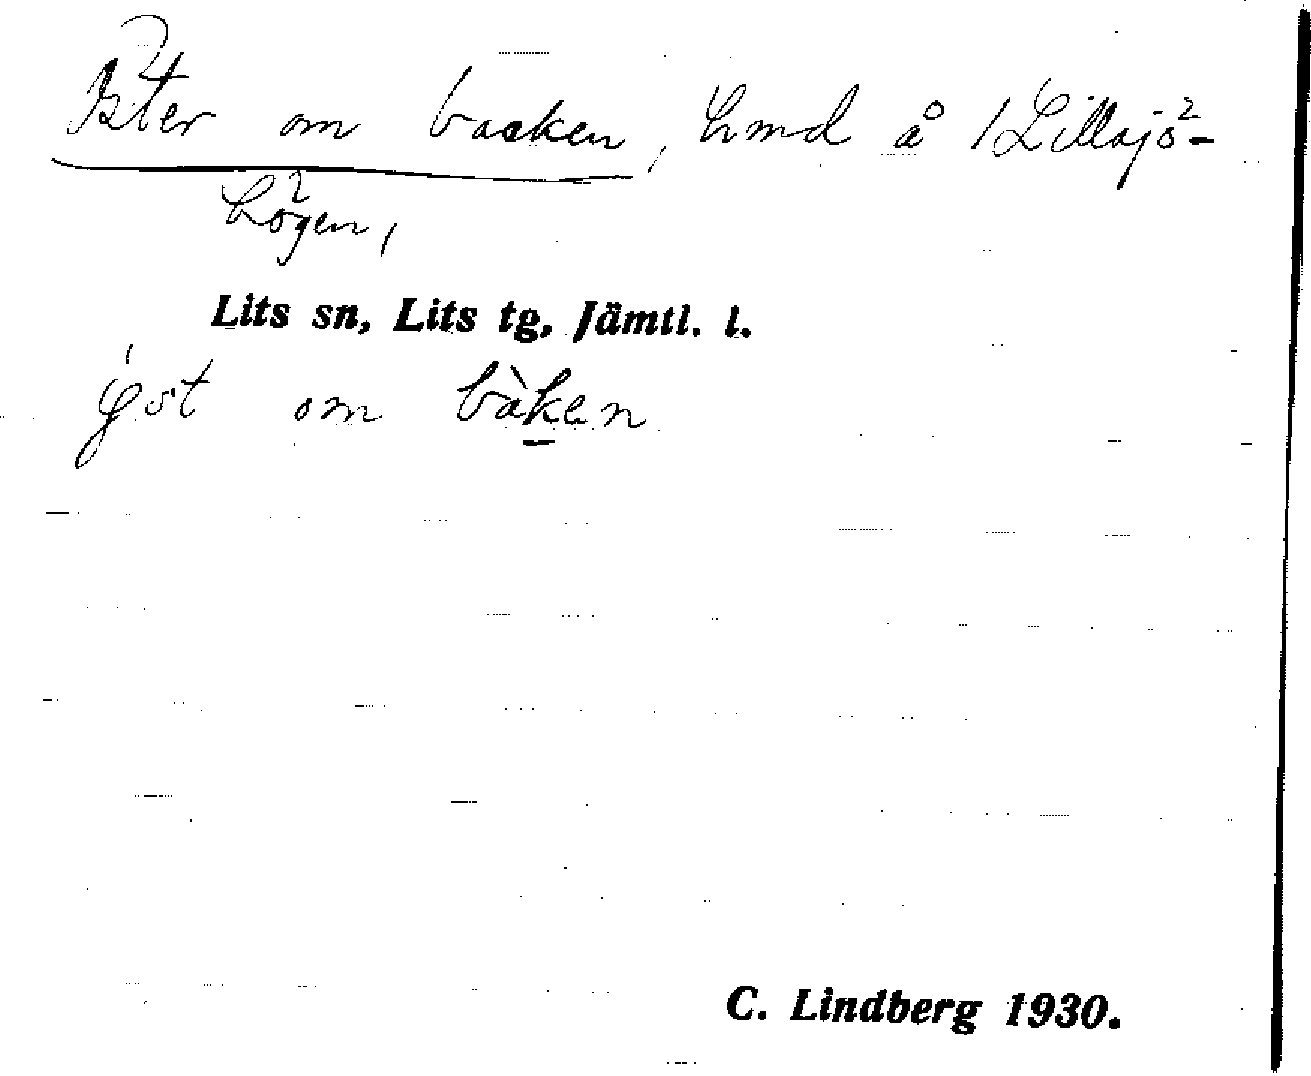 Öster om backen, hmd å 1 Lillsjö-
högen,
Lits sn, Lits tg, Jämtl. l.
om bàken
C. Lindberg 1930.